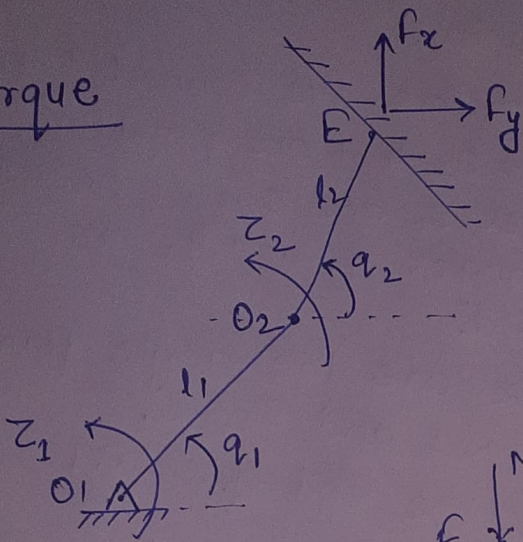 rque
Fx
Fy
E
l2
τ2
q2
O2
l1
τ1
q1
O1